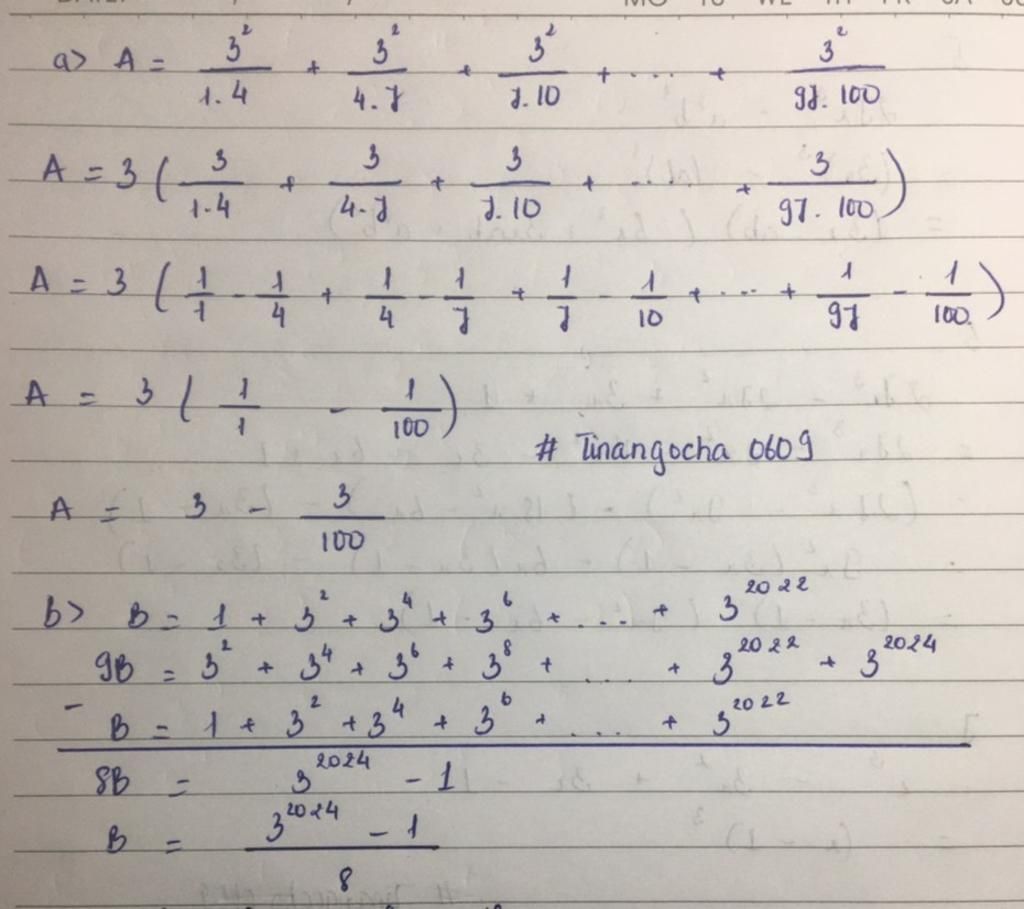 MO TU WE TH FR SA
a> A = 3²/1.4 + 3²/4.7 + 3²/7.10 + .... + 3²/97.100
A = 3 ( 3/1.4 + 3/4.7 + 3/7.10 + .... + 3/97.100 )
A = 3 ( 1/1 - 1/4 + 1/4 - 1/7 + 1/7 - 1/10 + ... + 1/97 - 1/100 )
A = 3 ( 1/1 - 1/100 )
# Tinangocha 0609
A = 3 - 3/100
b> B = 1 + 3² + 3⁴ + 3⁶ + .... + 3²⁰²²
9B = 3² + 3⁴ + 3⁶ + 3⁸ + .... + 3²⁰²² + 3²⁰²⁴
- B = 1 + 3² + 3⁴ + 3⁶ + .... + 3²⁰²²
8B = 3²⁰²⁴ - 1
B = (3²⁰²⁴ - 1)/8